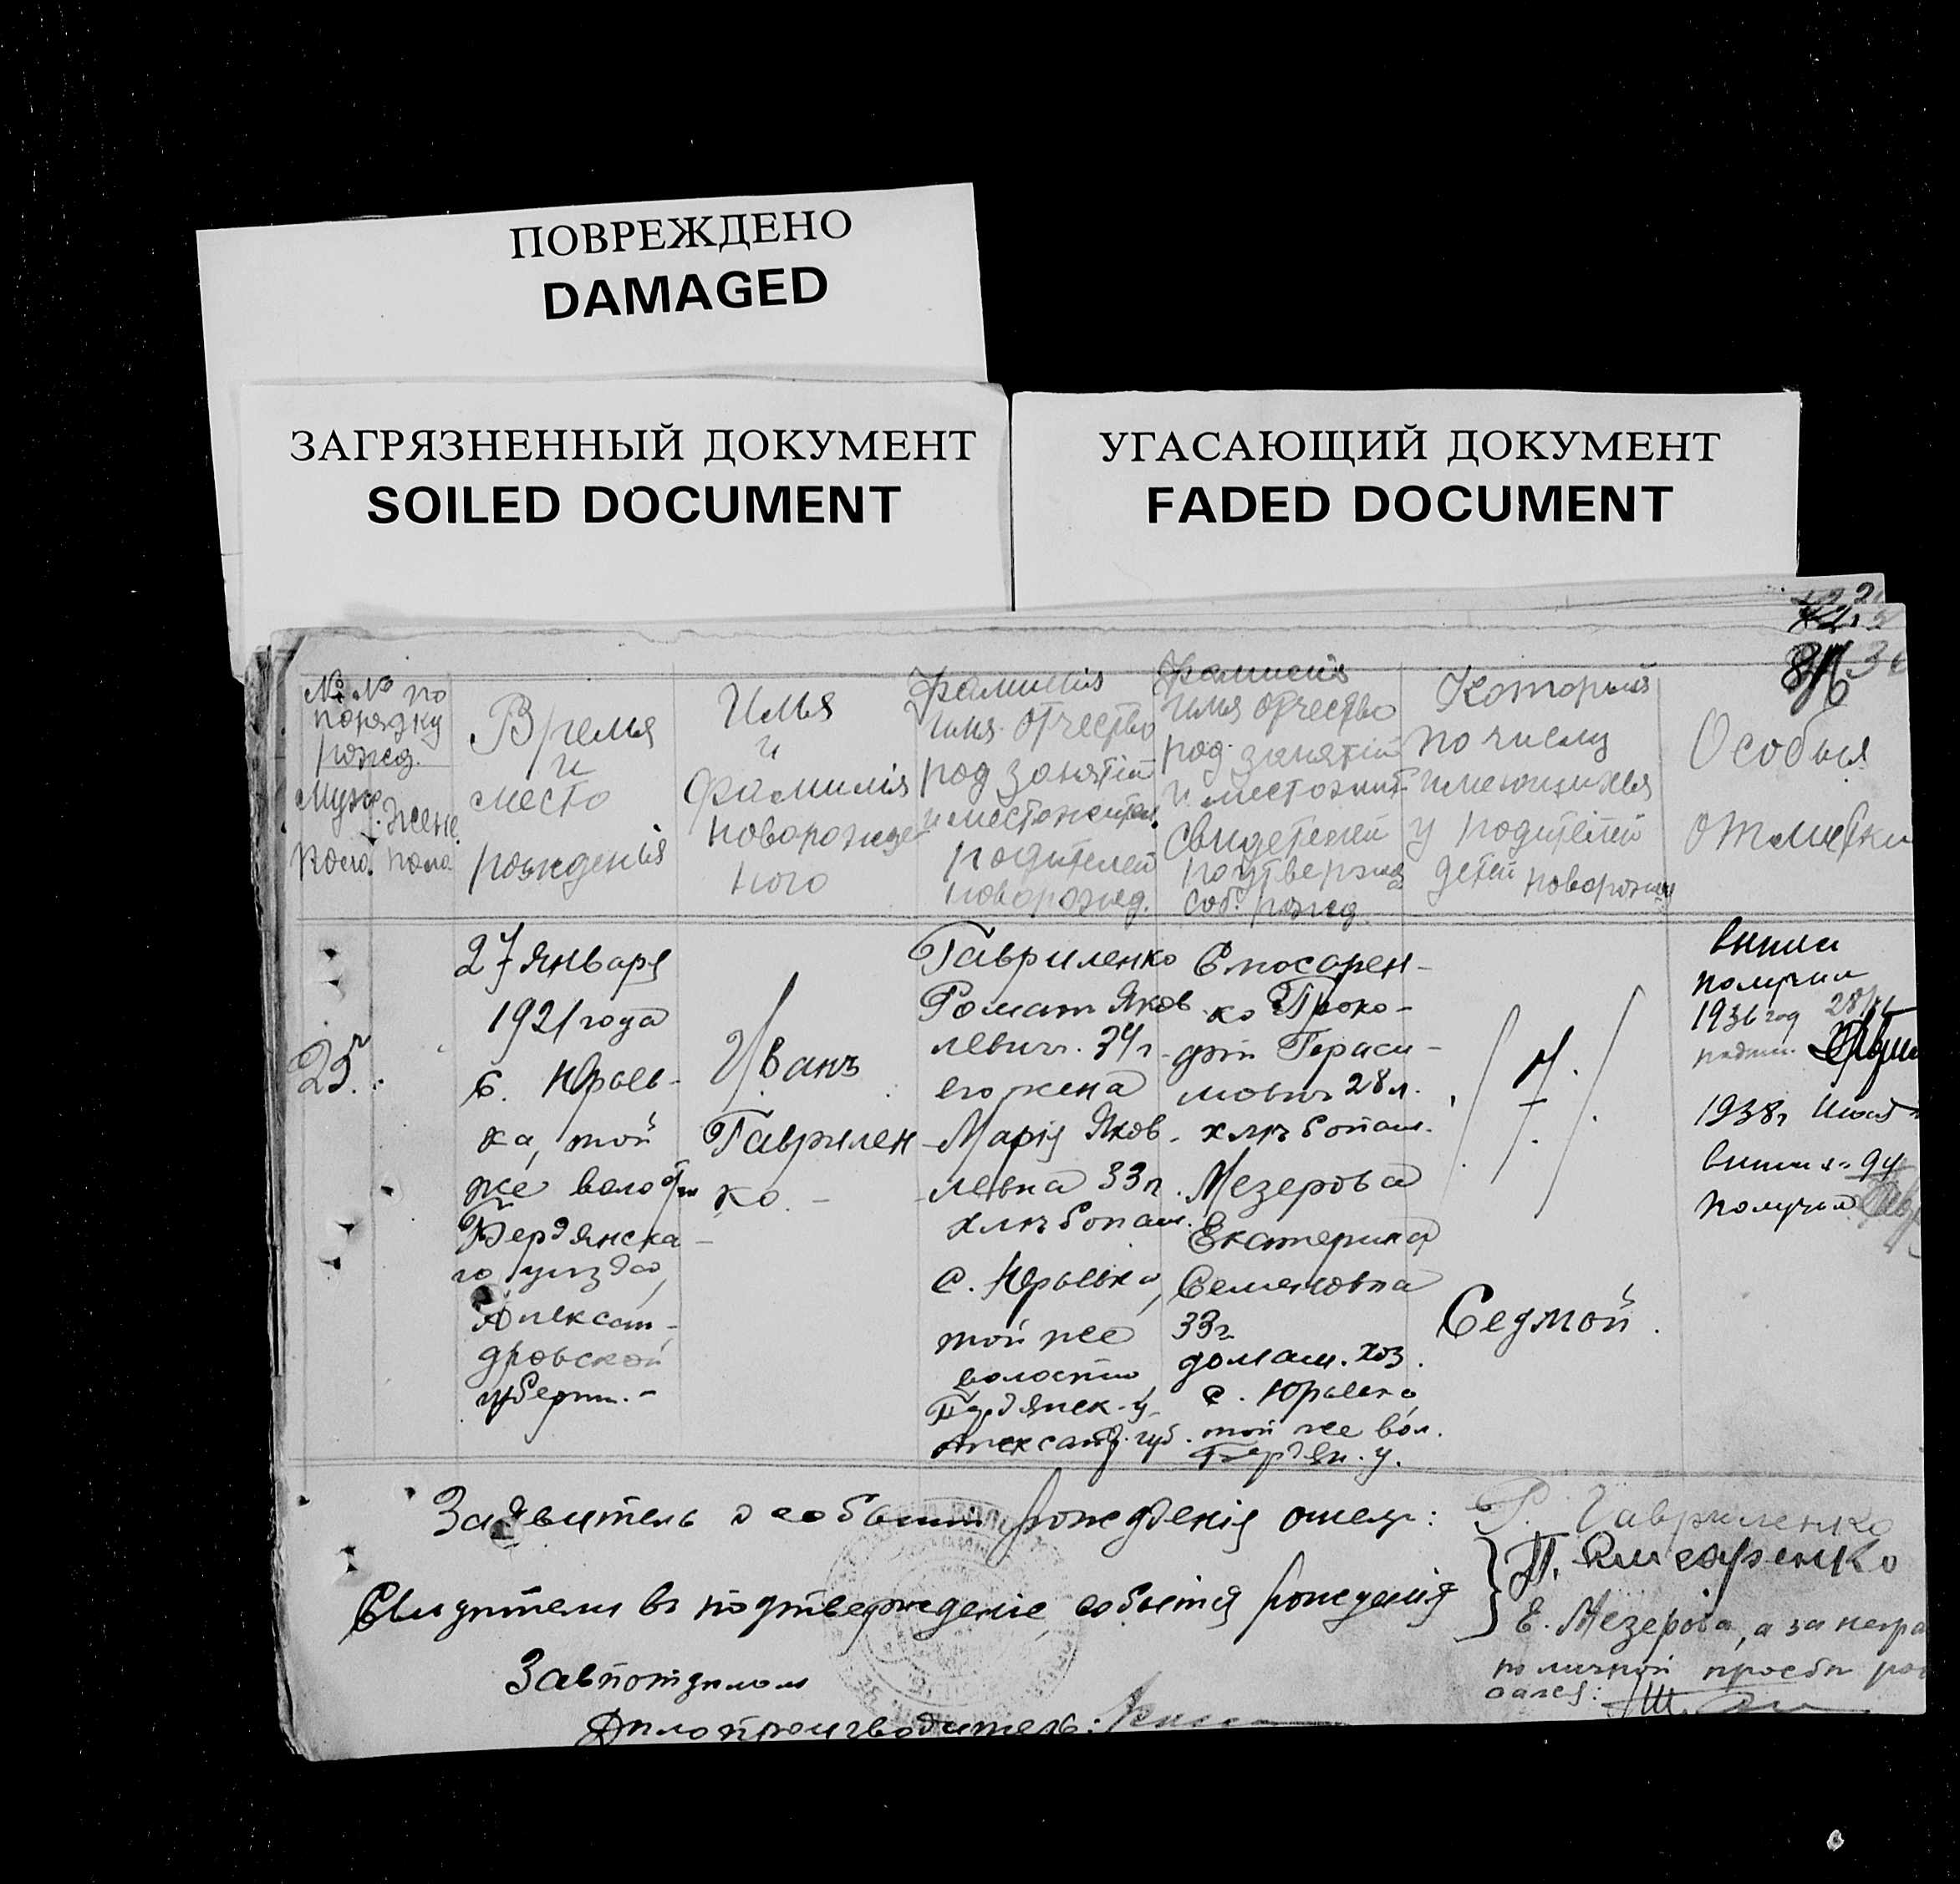 ПОВРЕЖДЕНО
DAMAGED
ЗАГРЯЗНЕННЫЙ ДОКУМЕНТ
SOILED DOCUMENT
УГАСАЮЩИЙ ДОКУМЕНТ
FADED DOCUMENT
№ № по
порядку
рожд.
Муж.
пола.
Женс.
пола
Время
и
место
рожденія
Имя
и
Фамилія
новорожде-
ного
Фамилія
имя отчество
род занятій
и местожител.
родителей
новорожд.
Фамилія
имя отчество
род занятій
и местожит.
свидетелей
подтвержд.
соб. рожд.
Который
по числу
имеющихся
у родителей
детей новорожд
Особыя
отметки
25.
27 Января
1921 года
с. Юрьев-
ка, той
же волости
Бердянска-
го уезда,
Александ-
дровской
губерни.-
Иванъ
Гаврилен-
ко. -
Гавриленко
Роман Яков
левич. 34 г.
его жена
Марія Яков-
левна 33 г.
хлѣбопаш.
с. Юрьевка,
той же
волости,
Бердянск. у.
Александ. губ.
ко Проко-
фій Гераси-
мович 28 л.
хлѣбопаш.
Мезерова
Екатерина
Семеновна
33 г.
домаш. хоз.
с. Юрьевка,
той же вол.
Бердян. у.
Седмой.
выпис
получил
1936 год
1938 г
получил
Заявитель о событии рожденія отец:
Р. Гавриленко
Свидетели в подтверждение событія рожденія
Е. Мезерова, а за негра
по личной просьбе рос
Завподотделом
Делопроизводитель: